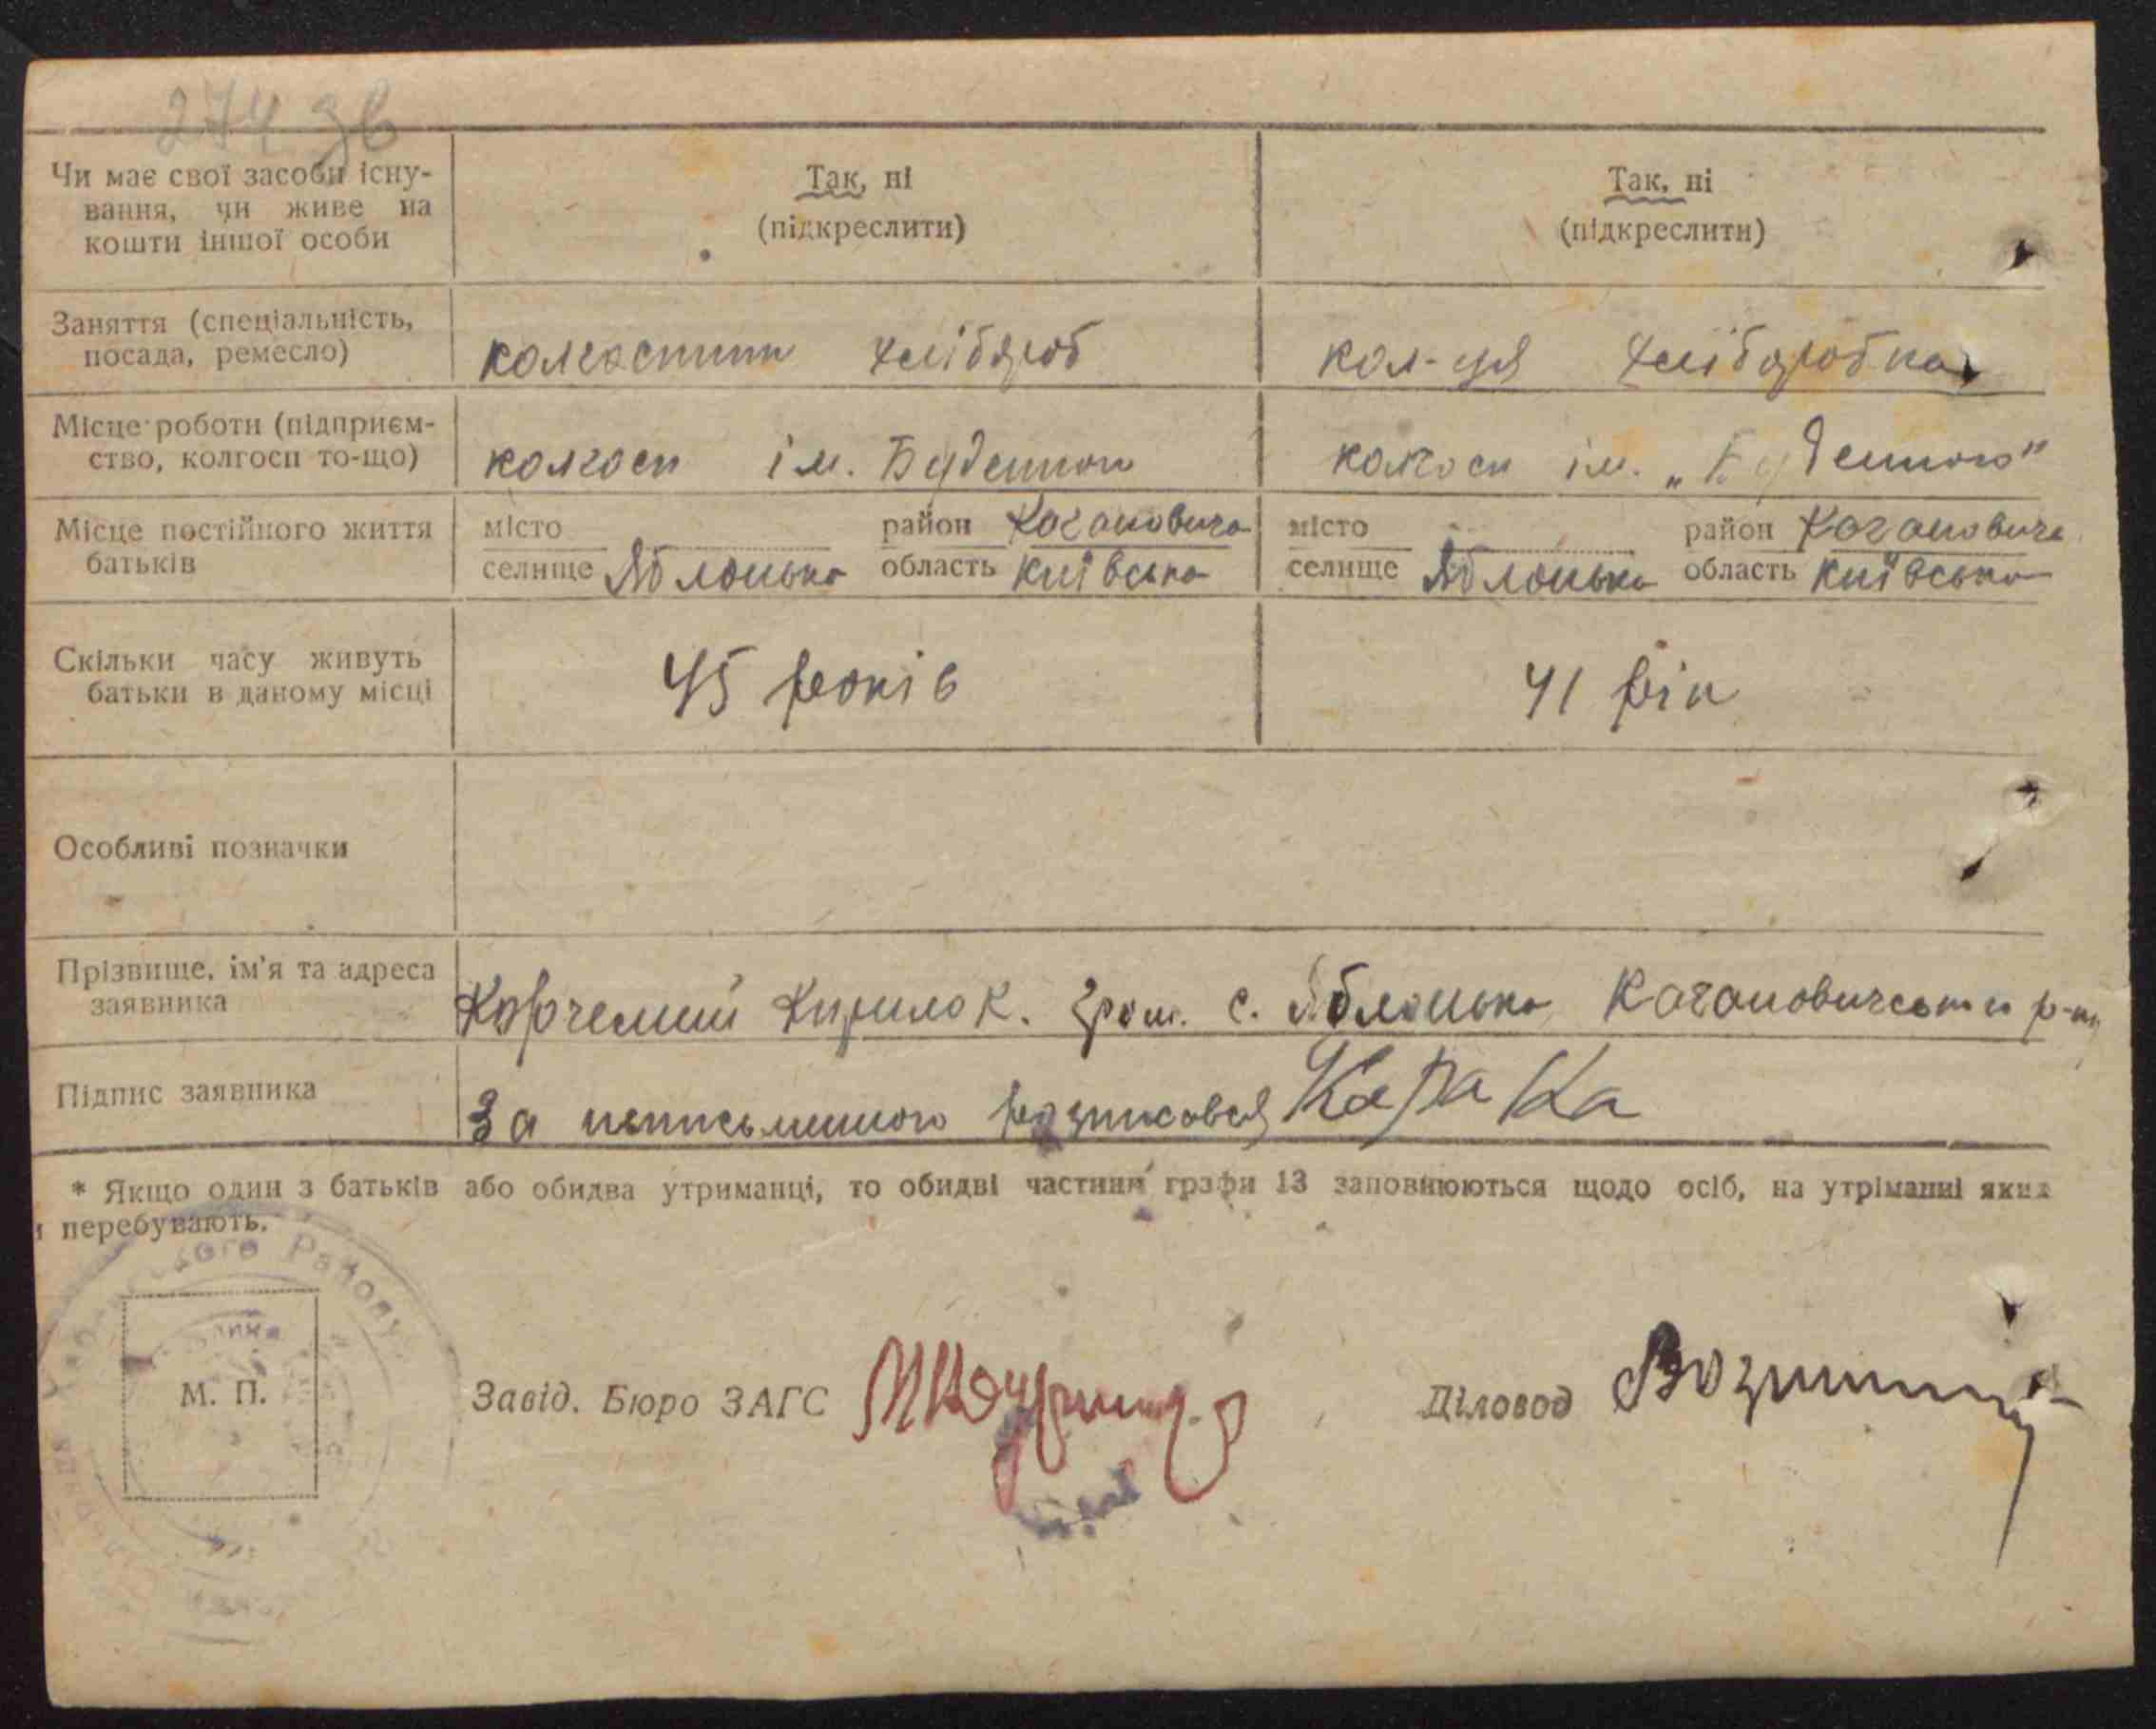 274 зв
Чи має свої засоби існу-
вання, чи живе на
кошти іншої особи
Так, ні
(підкреслити)
Так, ні
(підкреслити)
Заняття (спеціальність,
посада, ремесло)
колгоспник хлібороб
кол-ця хліборобка
Місце роботи (підприєм-
ство, колгосп то-що)
колгосп ім. Буденного
колгосп ім. „Буденного"
Місце постійного життя
батьків
місто район Кагановича
селище Яблонька область Київська
місто район Кагановича
селище Яблонька область Київська
Скільки часу живуть
батьки в даному місці
45 років
41 рік
Особливі позначки
Прізвище, ім'я та адреса
заявника
Корчемний Кирило К. гром. с. Яблонька Кагановичського р-ну
Підпис заявника
За неписьменного розписався
* Якщо один з батьків або обидва утриманці, то обидві частини графи 13 заповнюються щодо осіб, на утріманні яких
перебувають.
Району
М. П.
Завід. Бюро ЗАГС
Діловод